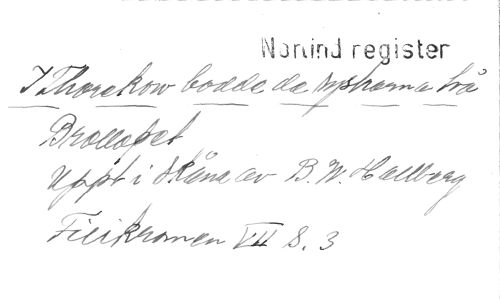 Norlind register
I Thorekow bodde de jomfrorna två
Bröllopet
Uppt i Skåne av B. W. Hallberg
Filikromen VII S. 3